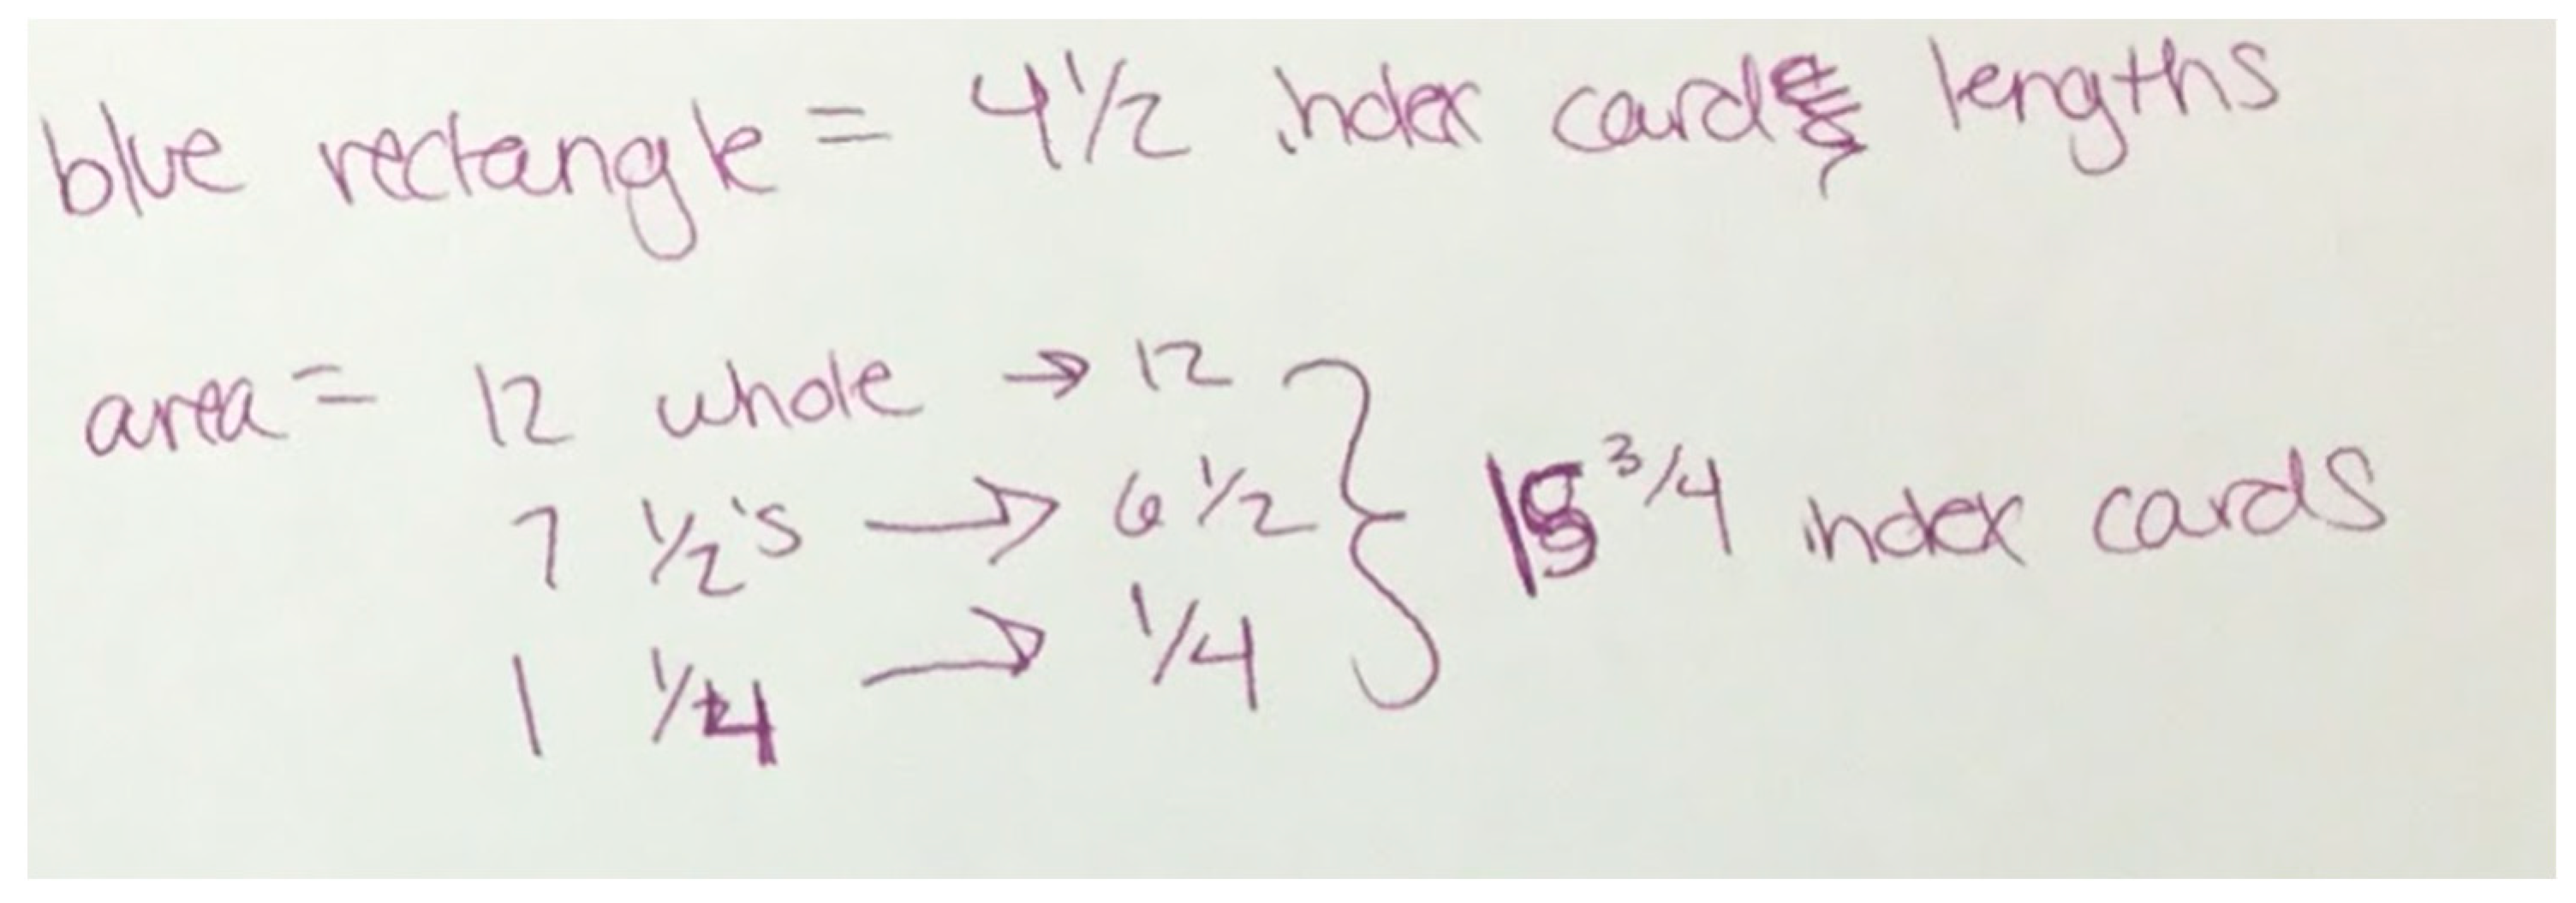 blue rectangle = 4 1/2 index card lengths
area = 12 whole → 12
7 1/2's → 6 1/2
1 1/4 → 1/4
3/4 index cards